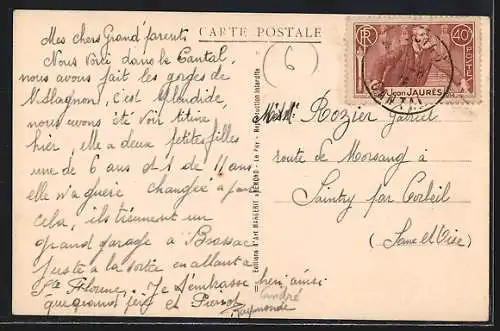 CARTE POSTALE
Mes chers Grand'parents
Nous voici dans le Cantal,
nous avons fait les gorges de
l'Allagnon, c'est splendide,
nous avons été voir titine
hier, elle a deux petites filles
une de 6 ans et 1 de 11 ans
elle n'a guère changée à part
cela, ils tiennent un
grand garage à Brassac
juste à la sortie en allant à
Ste Florine. Je t'embrasse bien ainsi
que grand père et Pierrot
André
Raymonde
6
RF
40c
POSTES
Jean JAURÈS
CANTAL
Rozier Gabriel
route de Morsang à
Saintry par Corbeil
(Seine et Oise)
Editions d'Art MARGERIT BREMOND - Le Puy - Reproduction interdite